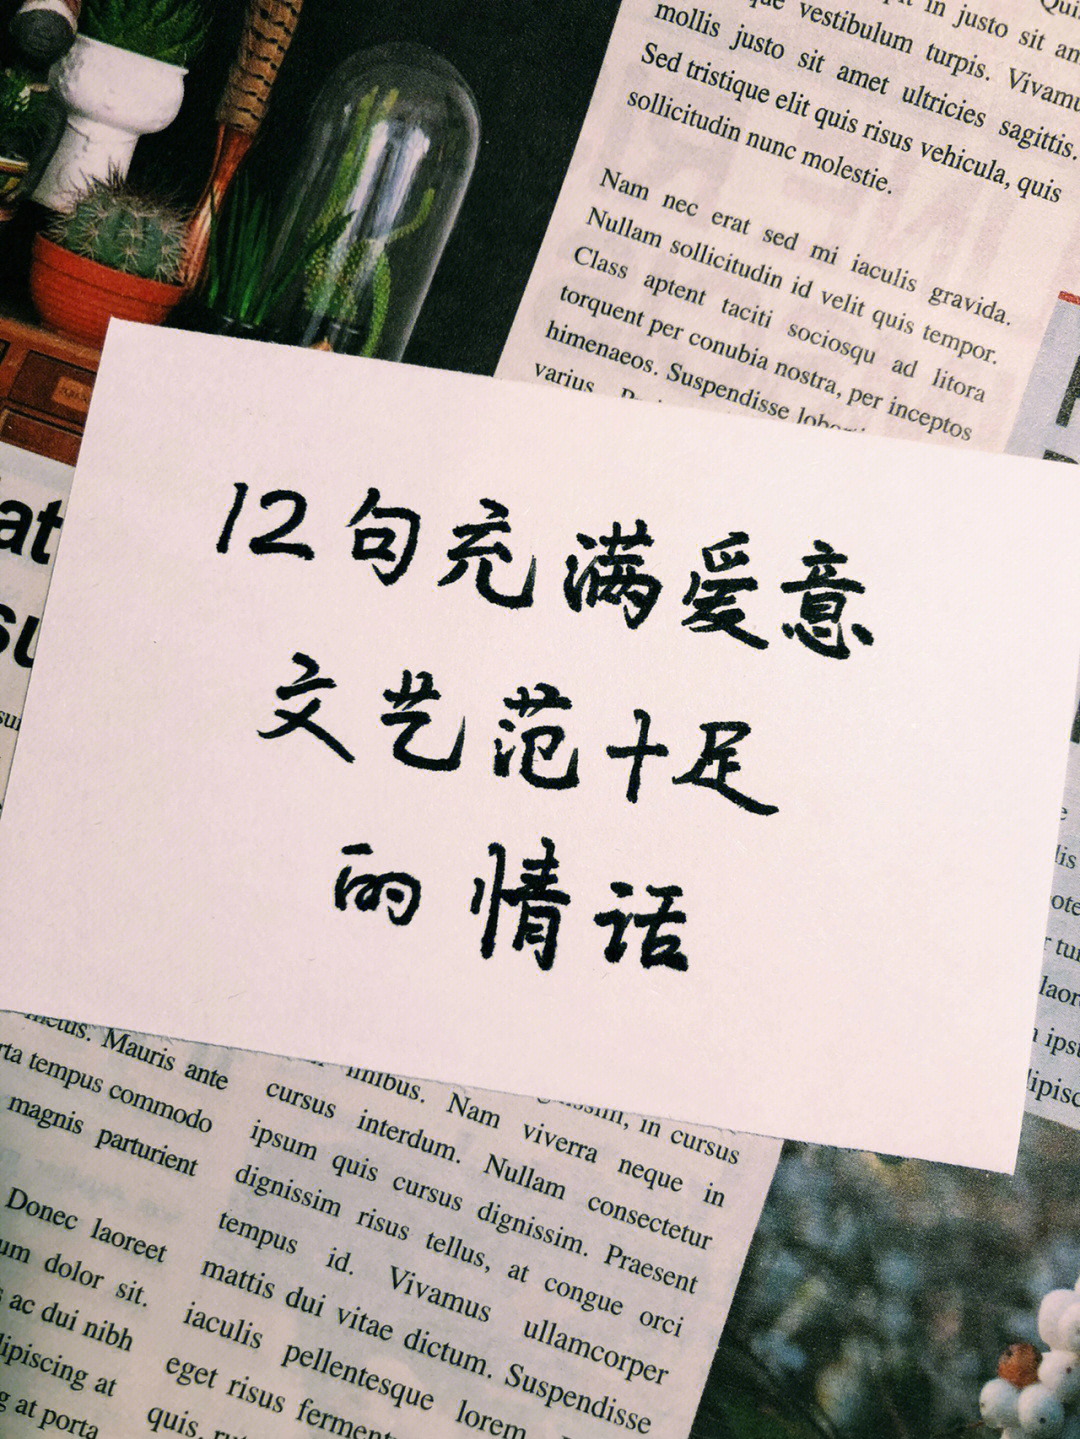 pit in justo sit
vestibulum turpis. Vivamu
mollis justo sit amet ultricies sagittis.
Sed tristique elit quis risus vehicula, quis
sollicitudin nunc molestie.
Nam nec erat sed mi iaculis gravida.
Nullam sollicitudin id velit quis tempor.
Class aptent taciti sociosqu ad litora
torquent per conubia nostra, per inceptos
himenaeos. Suspendisse
varius
12句充满爱意
文艺范十足
的情话
metus. Mauris ante
rta tempus commodo
magnis parturient
Donec laoreet
um dolor sit.
s ac dui nibh
dipiscing at
g at porta
finibus. Nam viverra neque in
cursus interdum. Nullam consectetur
ipsum quis cursus dignissim. Praesent
dignissim risus tellus, at congue orci
tempus id. Vivamus ullamcorper
mattis dui vitae dictum. Suspendisse
iaculis pellentesque lorem
eget risus
quis
in cursus